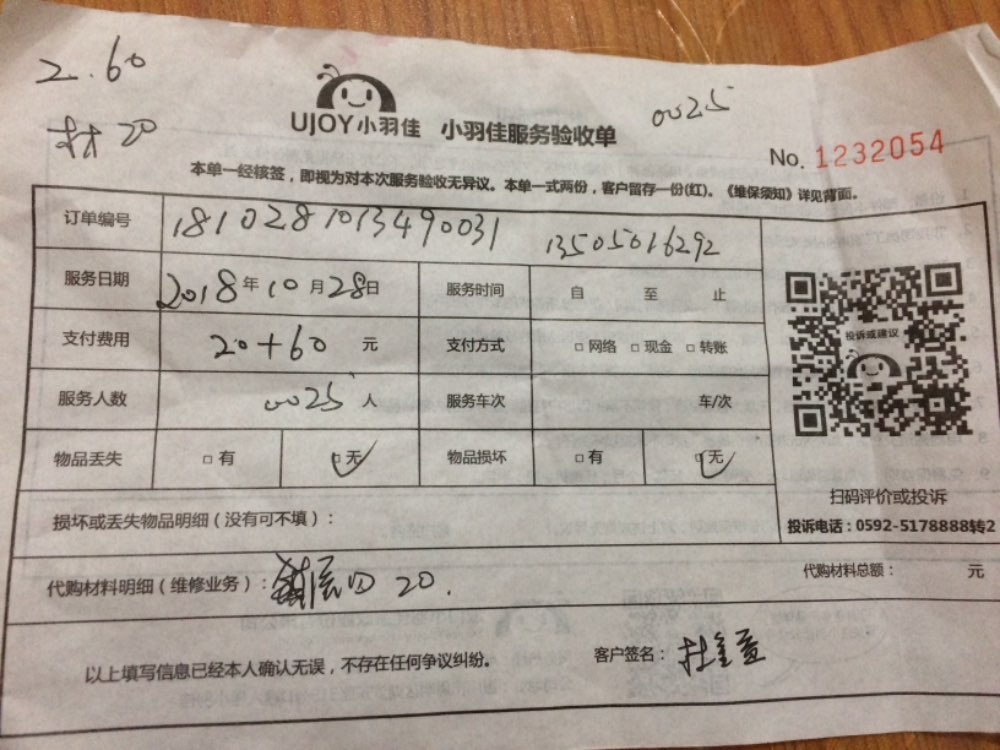 2.60
材 20
UJOY小羽佳 小羽佳服务验收单
0025
No. 1232054
本单一经核签，即视为对本次服务验收无异议。本单一式两份，客户留存一份(红)。《维保须知》详见背面。
订单编号 1810281013490031 13505016292
服务日期 2018年10月28日 服务时间 自 至 止
支付费用 20+60 元 支付方式 □网络 □现金 □转账
服务人数 0025 人 服务车次 车/次
物品丢失 □有 □无 物品损坏 □有 □无
投诉或建议
扫码评价或投诉
投诉电话：0592-5178888转2
损坏或丢失物品明细（没有可不填）：
代购材料明细（维修业务）： 20.
代购材料总额： 元
以上填写信息已经本人确认无误，不存在任何争议纠纷。
客户签名：